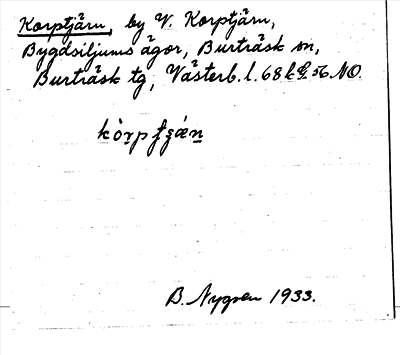 Korptjärn, by V. Korptjärn,
Bygdsiljums ägor, Burträsk sn,
Burträsk tg, Västerb. l. 68 k 56 NO.
B. Nygren 1933.